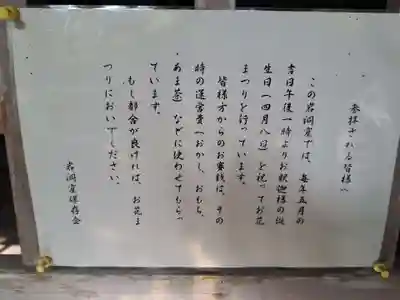 参拝される皆様へ
この岩洞窟では、毎年五月の
吉日午後一時よりお釈迦様の誕
生日(四月八日)を祝ってお花
まつりを行っています。
皆様方からのお賽銭は、その
時の運営費(おかし、おもち、
あま茶)などに使わせてもらっ
ています。
もし都合が良ければ、お花ま
つりにおいで下さい。
岩洞窟保存会